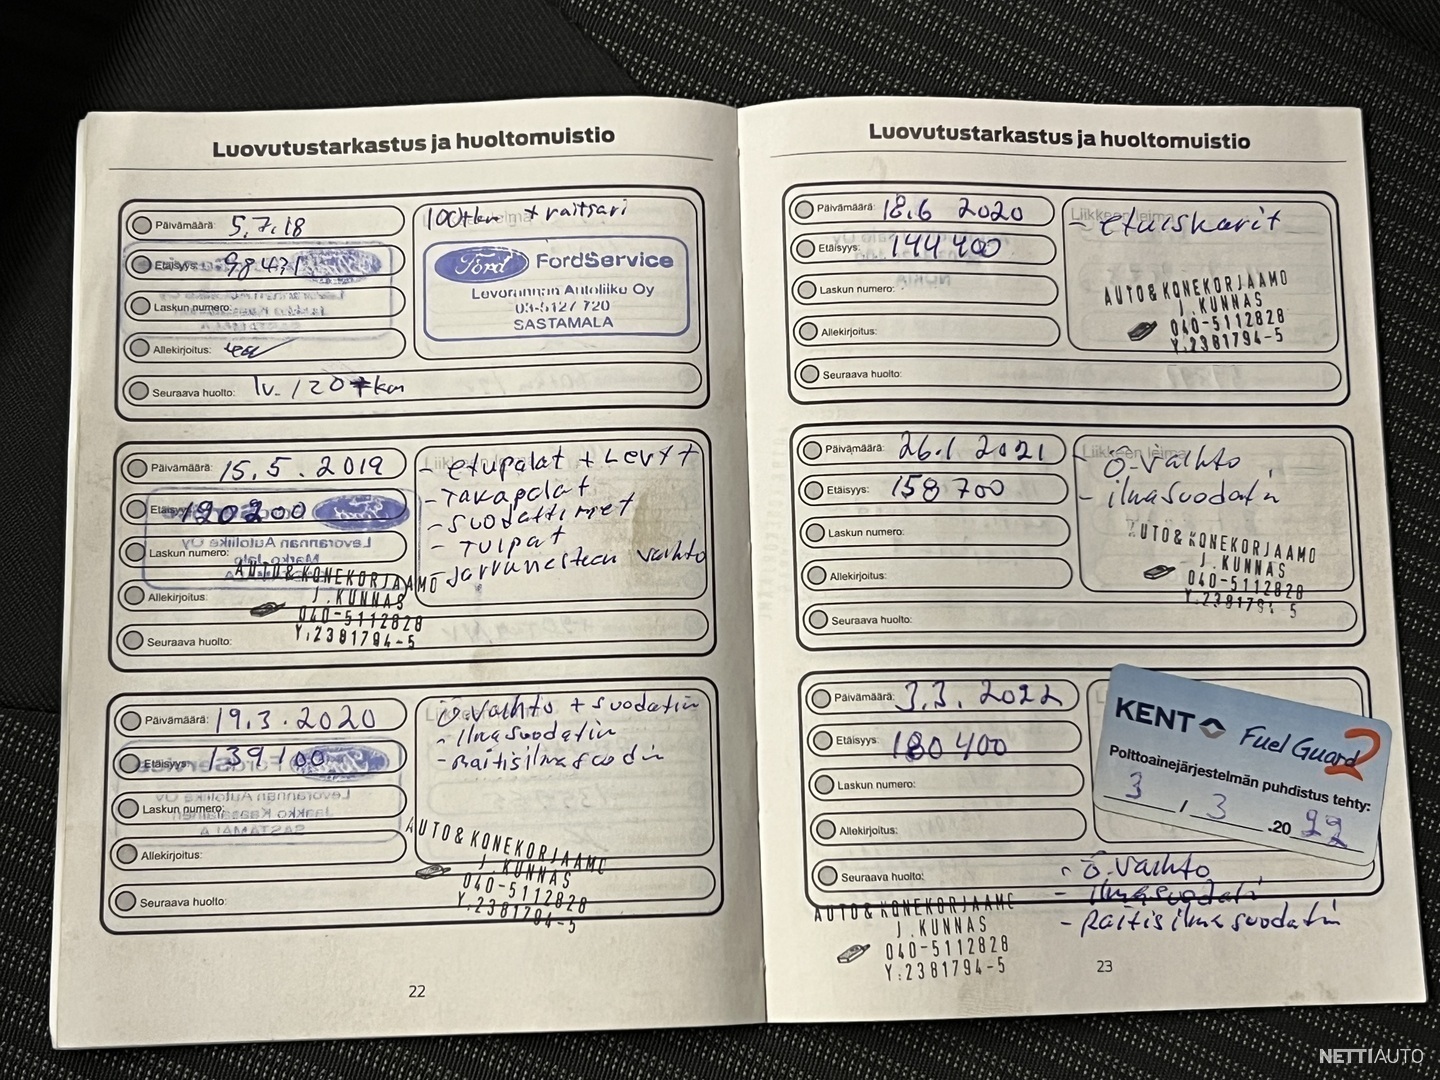 Luovutustarkastus ja huoltomuistio
Päivämäärä: 5.7.18
Etäisyys: 98431
Laskun numero:
Allekirjoitus:
Seuraava huolto: 1v. / 20tkm
100tkm + raitsari
Ford FordService
Levorannan Autoliike Oy
03-5127 720
SASTAMALA
Päivämäärä: 15.5.2019
Etäisyys: 120200
Laskun numero:
Allekirjoitus:
Seuraava huolto:
- etupalat + Levyt
- Takapalat
- suodattimet
- Tulpat
- Jarrunesteen vaihto
AUTO & KONEKORJAAMO
J. KUNNAS
040-5112828
Y.2381794-5
Päivämäärä: 19.3.2020
Etäisyys: 139100
Laskun numero:
Allekirjoitus:
Seuraava huolto:
ö.vaihto + suodatin
- ilmasuodatin
- raitisilmasuodin
AUTO & KONEKORJAAMO
J. KUNNAS
040-5112828
Y.2381794-5
22
Luovutustarkastus ja huoltomuistio
Päivämäärä: 18.6 2020
Etäisyys: 144400
Laskun numero:
Allekirjoitus:
Seuraava huolto:
Liikkeen leima
- etuiskarit
AUTO & KONEKORJAAMO
J. KUNNAS
040-5112828
Y.2381794-5
Päivämäärä: 26.1 2021
Etäisyys: 158 700
Laskun numero:
Allekirjoitus:
Seuraava huolto:
Liikkeen leima
- ö-vaihto
- ilmasuodatin
AUTO & KONEKORJAAMO
J. KUNNAS
040-5112828
Y.2381794-5
Päivämäärä: 3.3.2022
Etäisyys: 180400
Laskun numero:
Allekirjoitus:
Seuraava huolto:
KENT Fuel Guard 2
Polttoainejärjestelmän puhdistus tehty:
3 / 3 .20 22
- ö.vaihto
- ilmasuodatin
- raitisilmasuodatin
AUTO & KONEKORJAAMO
J. KUNNAS
040-5112828
Y.2381794-5
23
NETTIAUTO